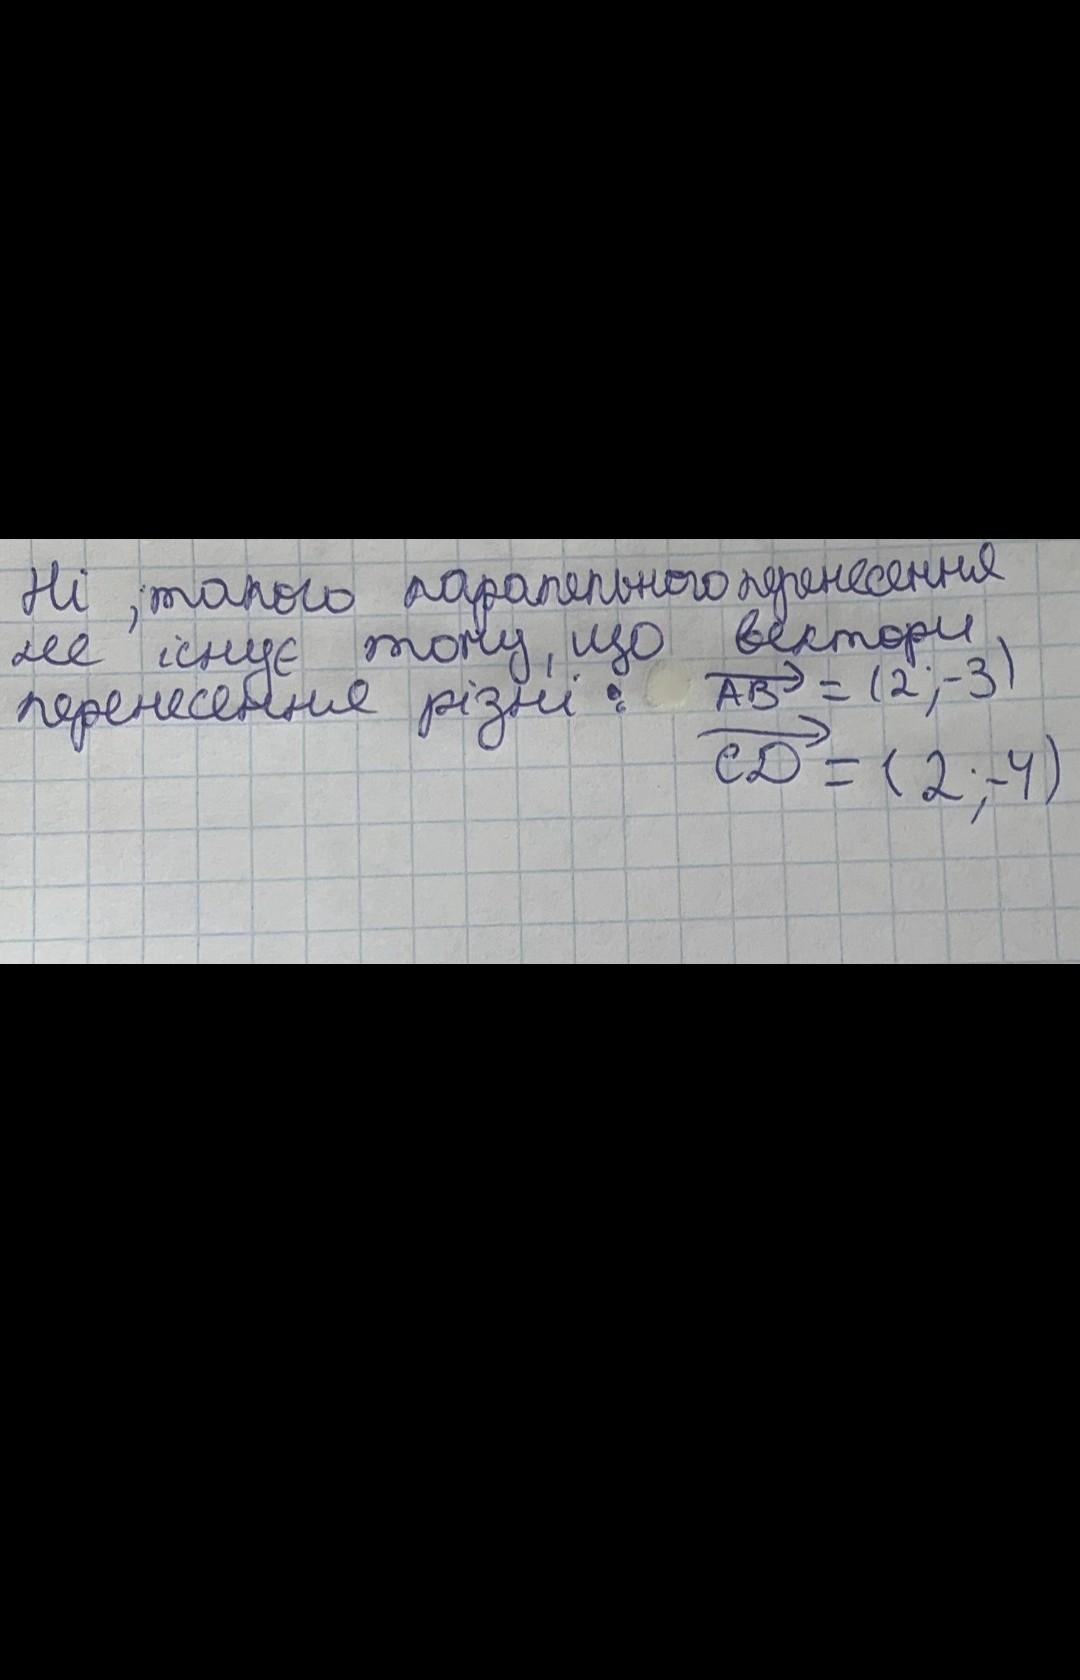 Ні, такого паралельного перенесення
не існує тому, що вектори
перенесення різні: AB = (2;-3)
CD = (2;-4)